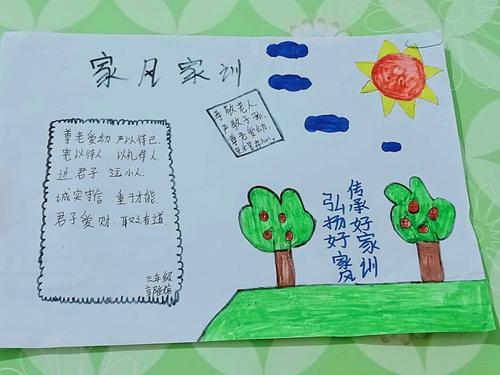 家风家训
尊老爱幼 严以待己
宽以待人 以礼待人
近君子 远小人
诚实守信 重于才能
君子爱财 取之有道
三年级
孝敬老人
严教子孙
尊老爱幼
传承好家训
弘扬好家风